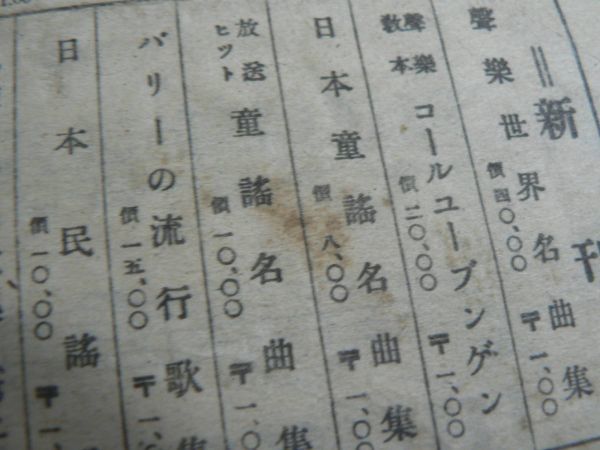 ＝新刊
聲樂世界名曲集
價四〇、〇〇
〒一、〇〇
聲樂教本
コールユーブンゲン
價二〇、〇〇
〒一、〇〇
日本童謠名曲集
價八、〇〇
〒一、〇〇
放送ヒツト
童謠名曲集
價一〇、〇〇
〒一、〇〇
パリーの流行歌集
價一五、〇〇
〒一、
日本民謠
價一〇、〇〇
〒一、